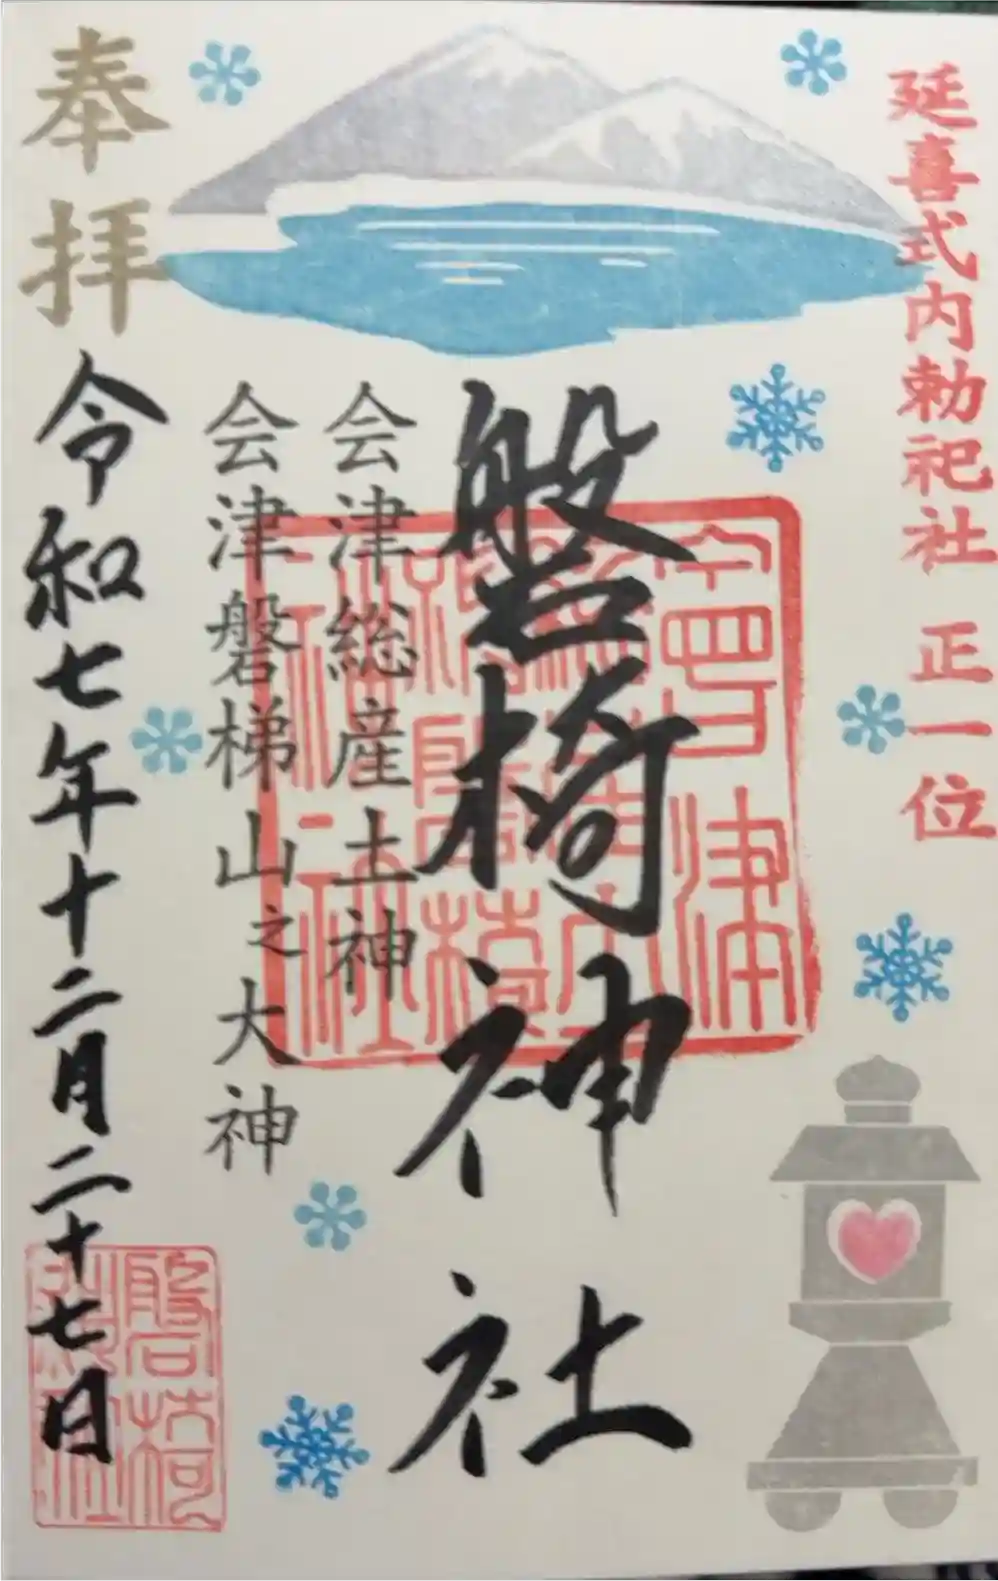 延喜式内勅祀社 正一位
磐椅神社
会津総産土神
会津磐梯山之大神
奉拝
令和七年十二月二十七日